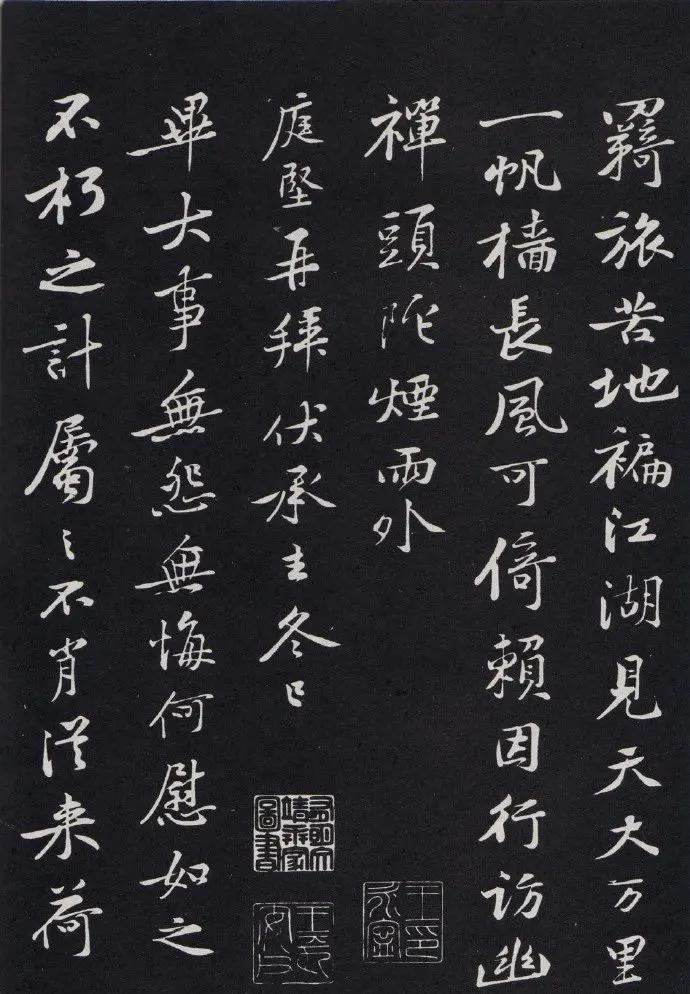 羇旅苦地褊江湖見天大万里
一帆檣長風可倚賴因行访幽
禪頭陀煙雨外
庭堅再拜伏承主冬已
畢大事無怨無悔何慰如之
不朽之計屬〻不肖従来荷
圖書